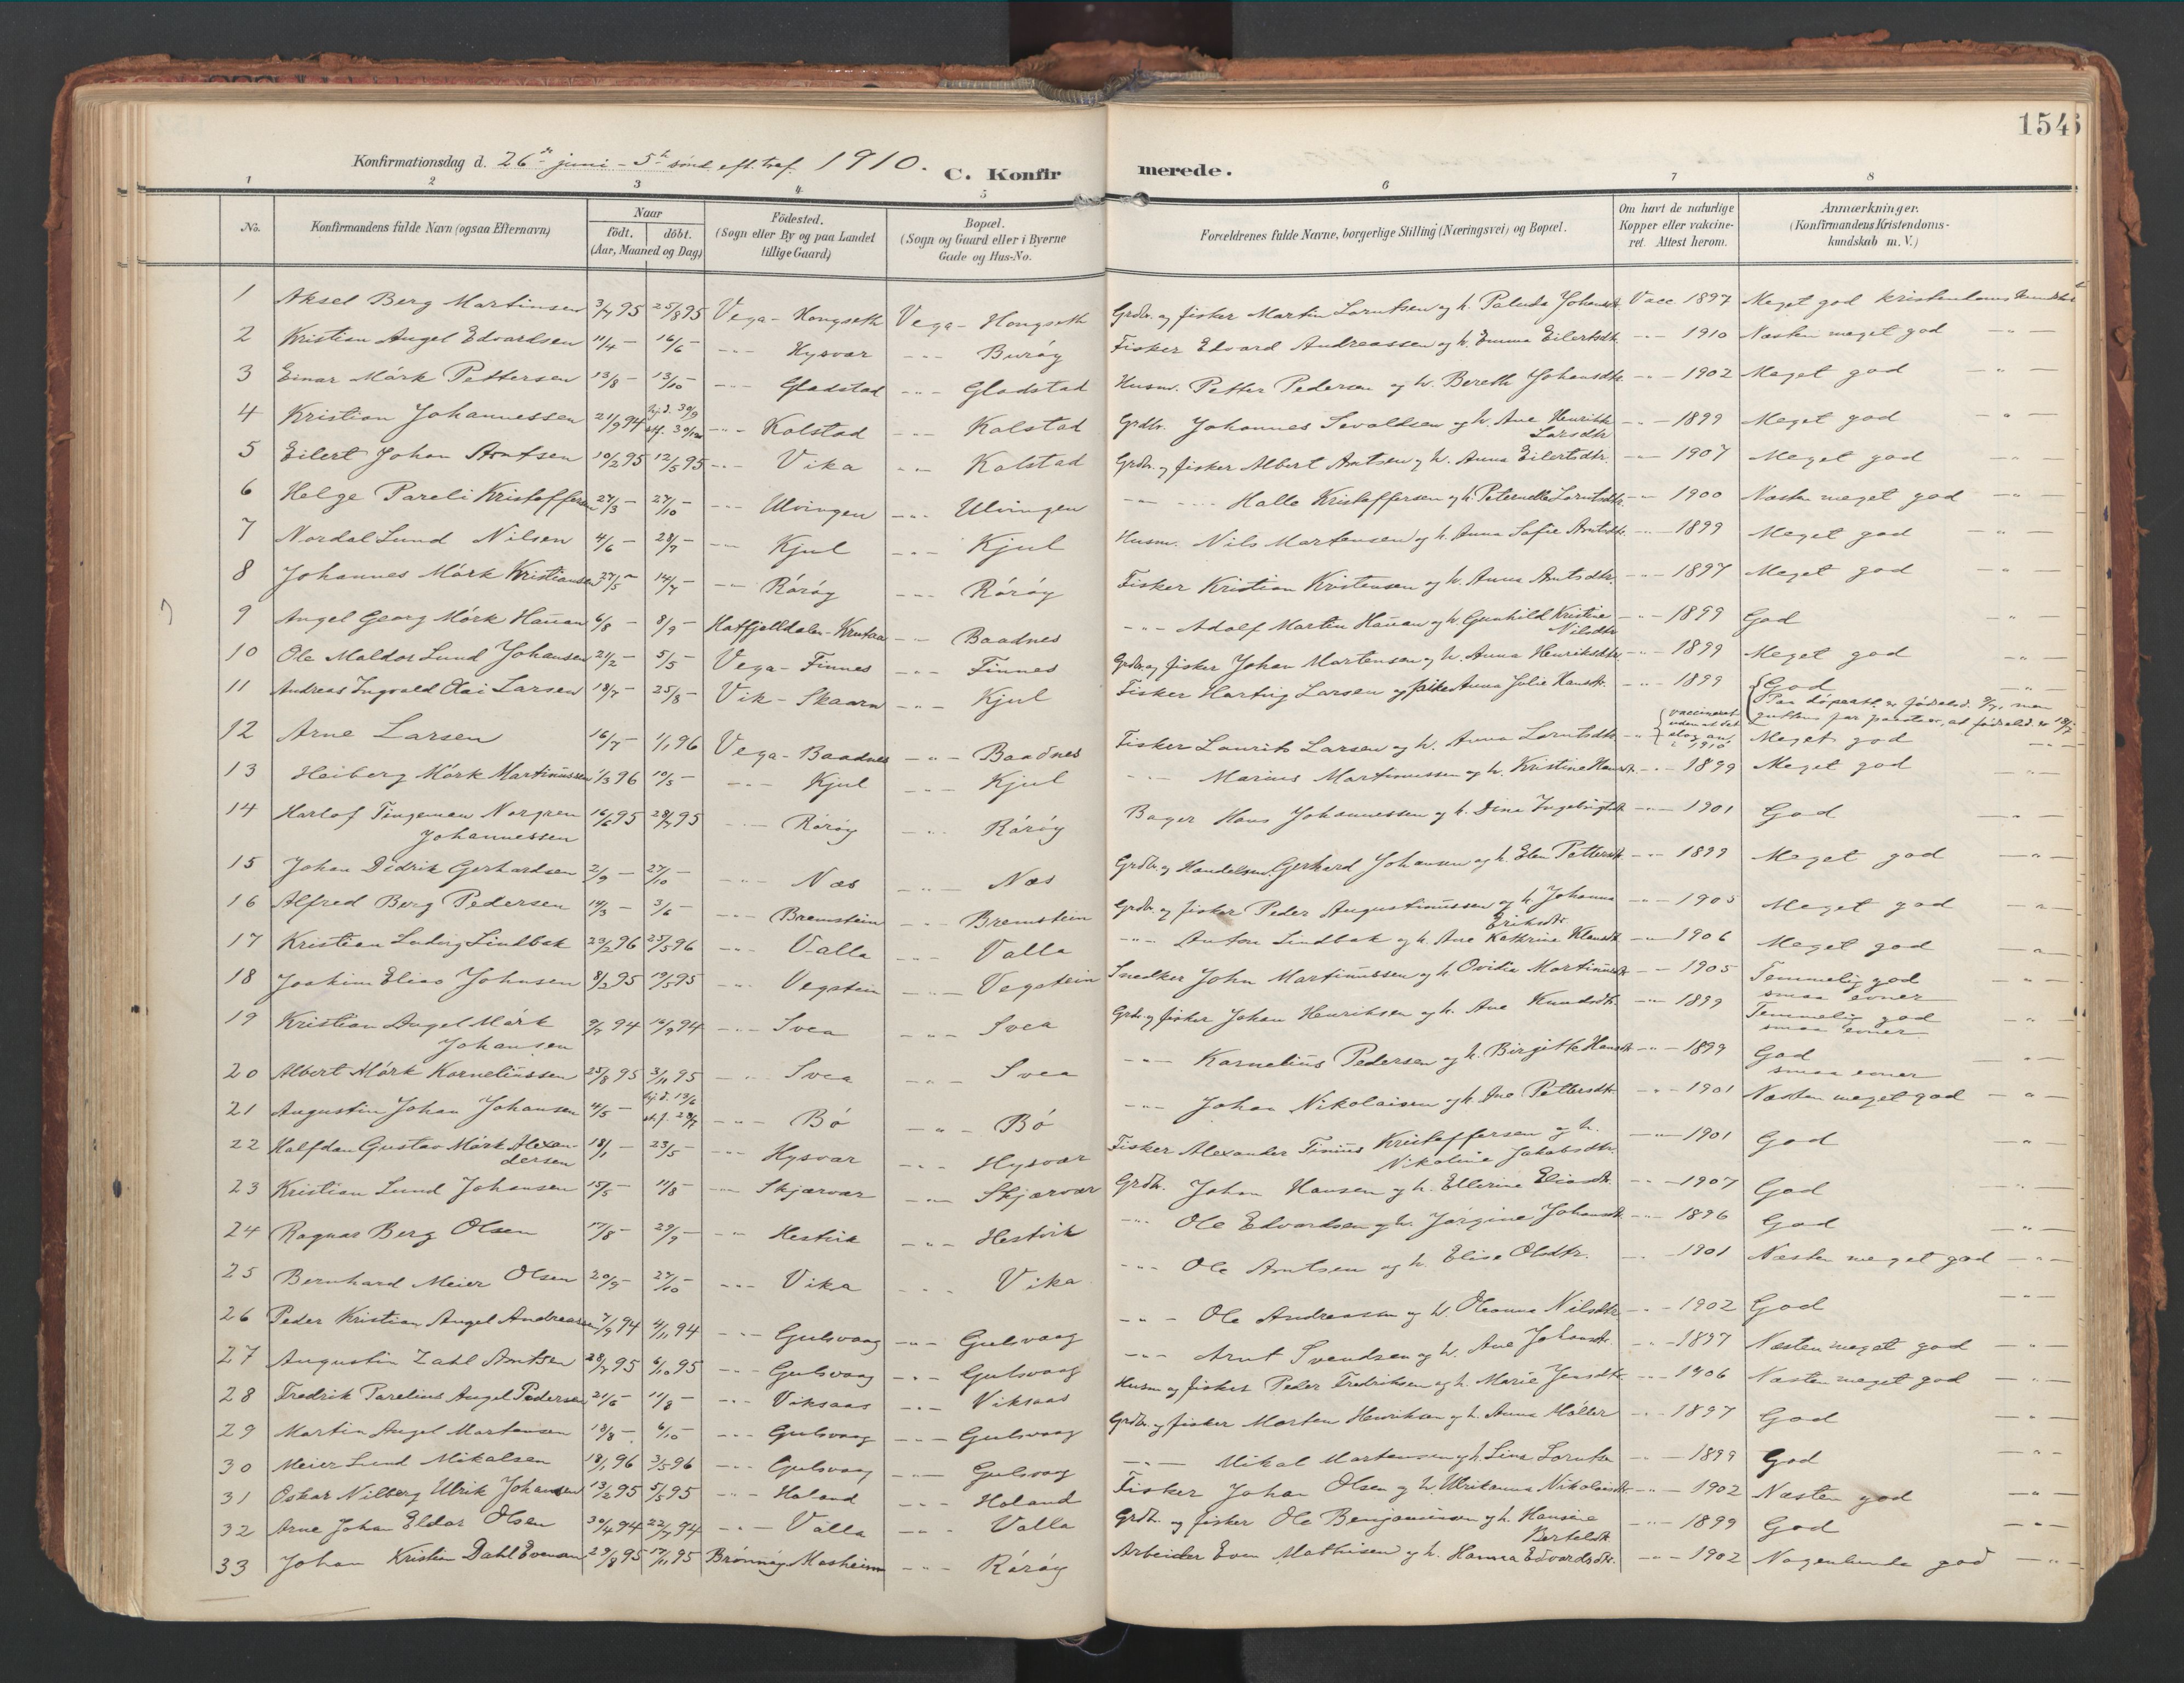 154
Konfirmationsdag d. 26de juni - 5te sönd. eft. tref. 1910. C. Konfirmerede.
1 2 3 4 5 6 7 8
No. Konfirmandens fulde Navn (ogsaa Efternavn) Naar födt. döbt. (Aar, Maaned og Dag) Födested. (Sogn eller By og paa Landet tillige Gaard) Bopæl. (Sogn og Gaard eller i Byerne Gade og Hus-No. Forældrenes fulde Navne, borgerlige Stilling (Næringsvei) og Bopæl. Om havt de naturlige Kopper eller vakcineret. Attest herom. Anmærkninger. (Konfirmandens Kristendomskundskab m. V.)
1 Aksel Berg Martinsen 3/7 95 25/8 95 Vega - Hongseth Vega - Hongseth Grdbr. og fisker Martin Lorntsen og h. Paluda Johansdt. Vacc 1897 Meget god kristendomskundskab
2 Kristian Angel Edvardsen 11/4 - 16/6 - -"- Hysvær -"- Buröy Fisker Edvard Andreassen og h. Emma Eilertsdtr. -"- 1910 Næsten meget god -"-
3 Einar Mörk Pettersen 13/8 - 13/10 - -"- Gladstad -"- Gladstad Husm. Petter Pedersen og h. Bereth Johansdtr. -"- 1902 Meget god -"-
4 Kristian Johannessen 21/9 94 hj.d. 30/9 -"- Kolstad -"- Kolstad Grdbr. Johannes Sevaldsen og h. Ane Henrikke Larsdtr -"- 1899 Meget god -"-
5 Eilert Johan Arntsen 10/2 95 12/5 95 -"- Vika -"- Kolstad Grdbr. og fisker Albert Arntsen og h. Anna Eilertsdtr. -"- 1907 Meget god -"-
6 Helge Pareli Kristoffersen 27/3 - 27/10 - -"- Ulvingen -"- Ulvingen -"- -"- Halle Kristoffersen og h. Peternelle Lorntsdtr. -"- 1900 Næsten meget god -"-
7 Nordal Lund Nilsen 4/6 - 28/7 - -"- Kjul -"- Kjul Husm. Nils Martensen og h. Anna Sofie Arntsdtr. -"- 1899 Meget god -"-
8 Johannes Mörk Kristiansen 27/5 - 14/7 - -"- Röröy -"- Röröy Fisker Kristian Kristensen og h. Anna Arntsdtr. -"- 1897 Meget god -"-
9 Angel Georg Mörk Hauan 6/8 - 8/9 - Hatfjelldalen - Krutaa -"- Baadnes -"- Adolf Martin Hauan og h. Gunhild Kristine Nilsdtr -"- 1899 God -"-
10 Ole Maldor Lund Johansen 21/2 - 5/5 - Vega - Finnes -"- Finnes Grdbr. og fisker Johan Martensen og h. Anna Henriksdtr. -"- 1899 Meget god -"-
11 Andreas Ingvald Olai Larsen 18/7 - 25/8 - Vik - Skaarn -"- Kjul Fisker Hartvig Larsen og pike Anna Julie Hansdtr. -"- 1899 God -"-
Paa döpsatt. er födselsd. 9/7, men guttens far paastaar, at födselsd. er 18/7
12 Arne Larsen 16/7 - 1/1 96 Vega - Baadnes -"- Baadnes Fisker Laurits Larsen og h. Anna Lorntsdtr. -"- vaccineret uden at det slog an i 1910 Meget god -"-
13 Heiberg Mörk Martinussen 1/3 96 10/5 - -"- Kjul -"- Kjul -"- Marius Martinussen og h. Kristine Hansdtr. -"- 1899 Meget god -"-
14 Harlof Tingeman Norgren Johannessen 16/6 95 28/7 95 -"- Röröy -"- Röröy Bager Hans Johannessen og h. Dina Ingebrigtsdt. -"- 1901 God -"-
15 Johan Didrik Gerhardsen 2/9 - 27/10 - -"- Næs -"- Næs Grdbr. og Handelsm. Gerhard Johansen og h. Elen Pettersdt. -"- 1899 Meget god -"-
16 Alfred Berg Pedersen 14/3 - 3/6 - -"- Bremstein -"- Bremstein Grdbr. og fisker Peder Augustinussen og h. Johanna Eriksdtr. -"- 1905 Meget god -"-
17 Kristian Ludvig Lindbak 23/2 96 25/5 96 -"- Valla -"- Valla -"- Anton Lindbak og h. Ane Kathrine Klausdt. -"- 1906 Meget god -"-
18 Joakim Elias Johnsen 8/2 95 19/5 95 -"- Vegstein -"- Vegstein Snedker John Martinussen og h. Ovidia Martinusdt. -"- 1905 Temmelig god smaa evner -"-
19 Kristian Angel Mörk Johansen 9/7 94 16/9 94 -"- Svea -"- Svea Grdbr. og fisker Johan Henriksen og h. Ane Knudsdtr. -"- 1899 Temmelig god smaa evner -"-
20 Albert Mörk Korneliussen 25/8 95 3/11 95 -"- Svea -"- Svea -"- Kornelius Pedersen og h. Birgitte Hansdt. -"- 1899 God smaa evner -"-
21 Augustin Johan Johansen 4/5 - hj.d. 13/6 st.f. 28/7 -"- Bö -"- Bö -"- Johan Nikolaisen og h. Ane Pettersdtr. -"- 1901 Næsten meget god -"-
22 Halfdan Gustav Mörk Alexandersen 18/1 - 23/5 - -"- Hysvær -"- Hysvær Fisker Alexander Tinius Kristoffersen og h. Nikoline Jakobsdtr. -"- 1901 God -"-
23 Kristian Lund Johansen 15/5 - 11/8 - -"- Skjærvær -"- Skjærvær Grdbr. Johan Hansen og h. Ellerine Eliasdt. -"- 1907 God -"-
24 Ragnar Berg Olsen 17/8 - 29/9 - -"- Hestvik -"- Hestvik -"- Ole Edvardsen og h. Jörgine Johansdt. -"- 1896 God -"-
25 Bernhard Meier Olsen 20/9 - 27/10 - -"- Vika -"- Vika -"- Ole Arntsen og h. Elise Olsdtr. -"- 1901 Næsten meget god -"-
26 Peder Kristian Angel Andreassen 7/9 94 4/11 94 -"- Gulsvaag -"- Gulsvaag -"- Ole Andreassen og h. Oleanna Nilsdtr. -"- 1902 God -"-
27 Augustin Zahl Arntsen 28/7 95 6/10 95 -"- Gulsvaag -"- Gulsvaag -"- Arnt Svendsen og h. Ane Johansdtr. -"- 1897 Næsten meget god -"-
28 Fredrik Parelius Angel Pedersen 21/6 - 11/8 - -"- Viksaas -"- Viksaas Husm. og fisker Peder Fredriksen og h. Marie Jensdtr. -"- 1906 Næsten meget god -"-
29 Martin Angel Martensen 18/8 - 6/10 - -"- Gulsvaag -"- Gulsvaag Grdbr. og fisker Morten Henriksen og h. Anna Möller -"- 1897 God -"-
30 Meier Lund Mikalsen 18/1 96 3/5 96 -"- Gulsvaag -"- Gulsvaag -"- Mikal Martensen og h. Lina Lorntsen -"- 1899 God -"-
31 Oskar Nilberg Ulrik Johansen 13/2 95 5/5 95 -"- Holand -"- Holand Fisker Johan Olsen og h. Ulrikanna Nikolaisdt. -"- 1902 Næsten god -"-
32 Arne Johan Eldar Olsen 30/4 94 22/7 94 -"- Valla -"- Valla Grdbr. og fisker Ole Benjaminsen og h. Hansine Berteldt. -"- 1899 God -"-
33 Johan Kristian Dahl Evensen 29/8 95 17/11 95 Brönnöy Mosheim -"- Röröy Arbeider Even Mathisen og h. Hanna Edvardsdtr. -"- 1902 Nogenlunde god -"-